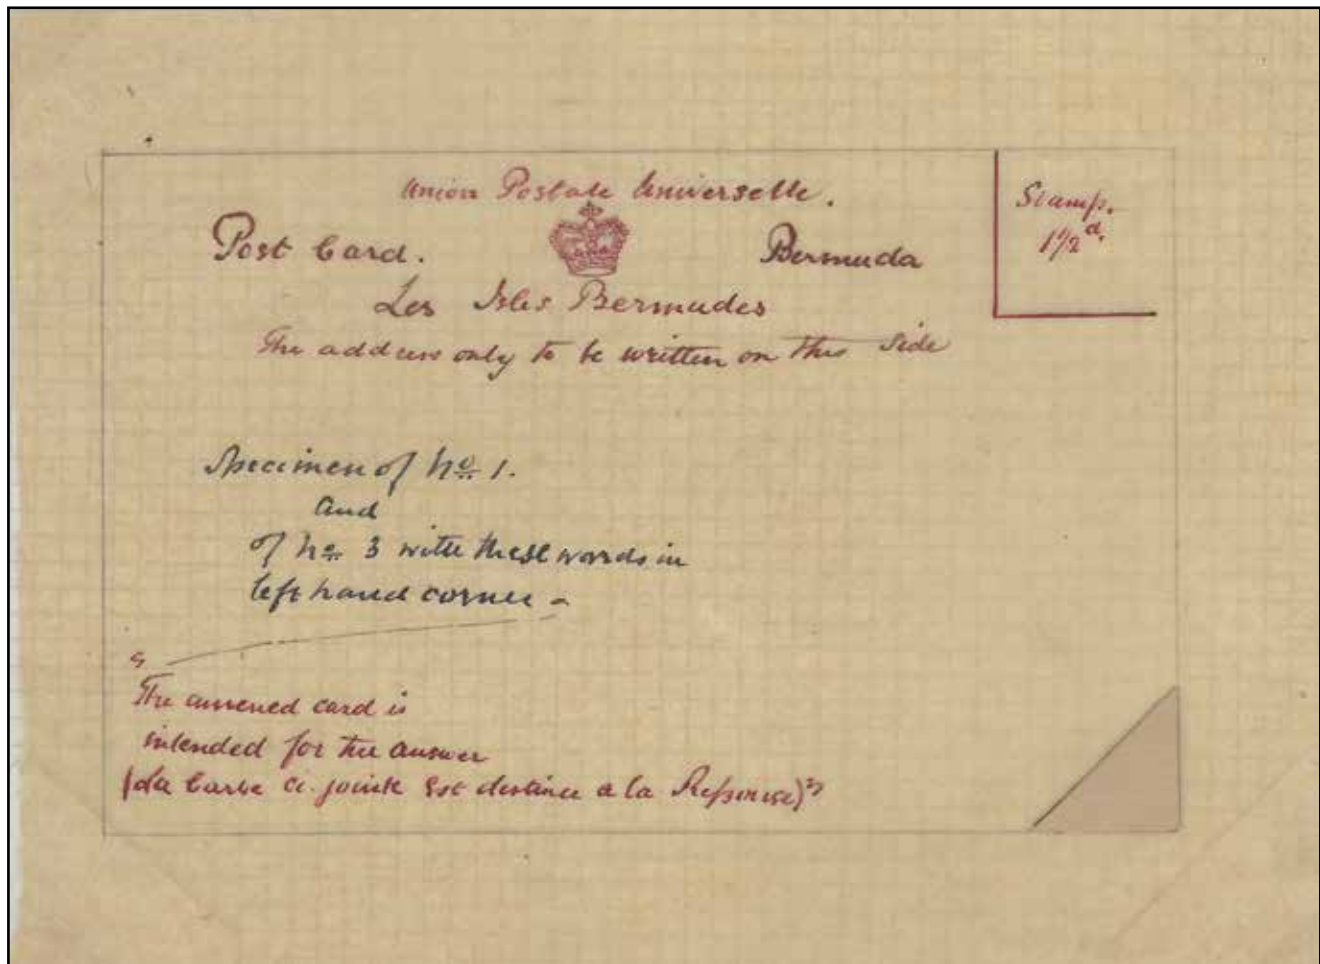 Union Postale Universelle.
Post Card. Bermuda
Stamp.
1 1/2 d.
Les Isles Bermudes
The address only to be written on this side
Specimen of No. 1.
and
of No. 3 with these words in
left hand corner -
"
The annexed card is
intended for the answer
(La Carte ci-jointe est destinee a la Reponse)"